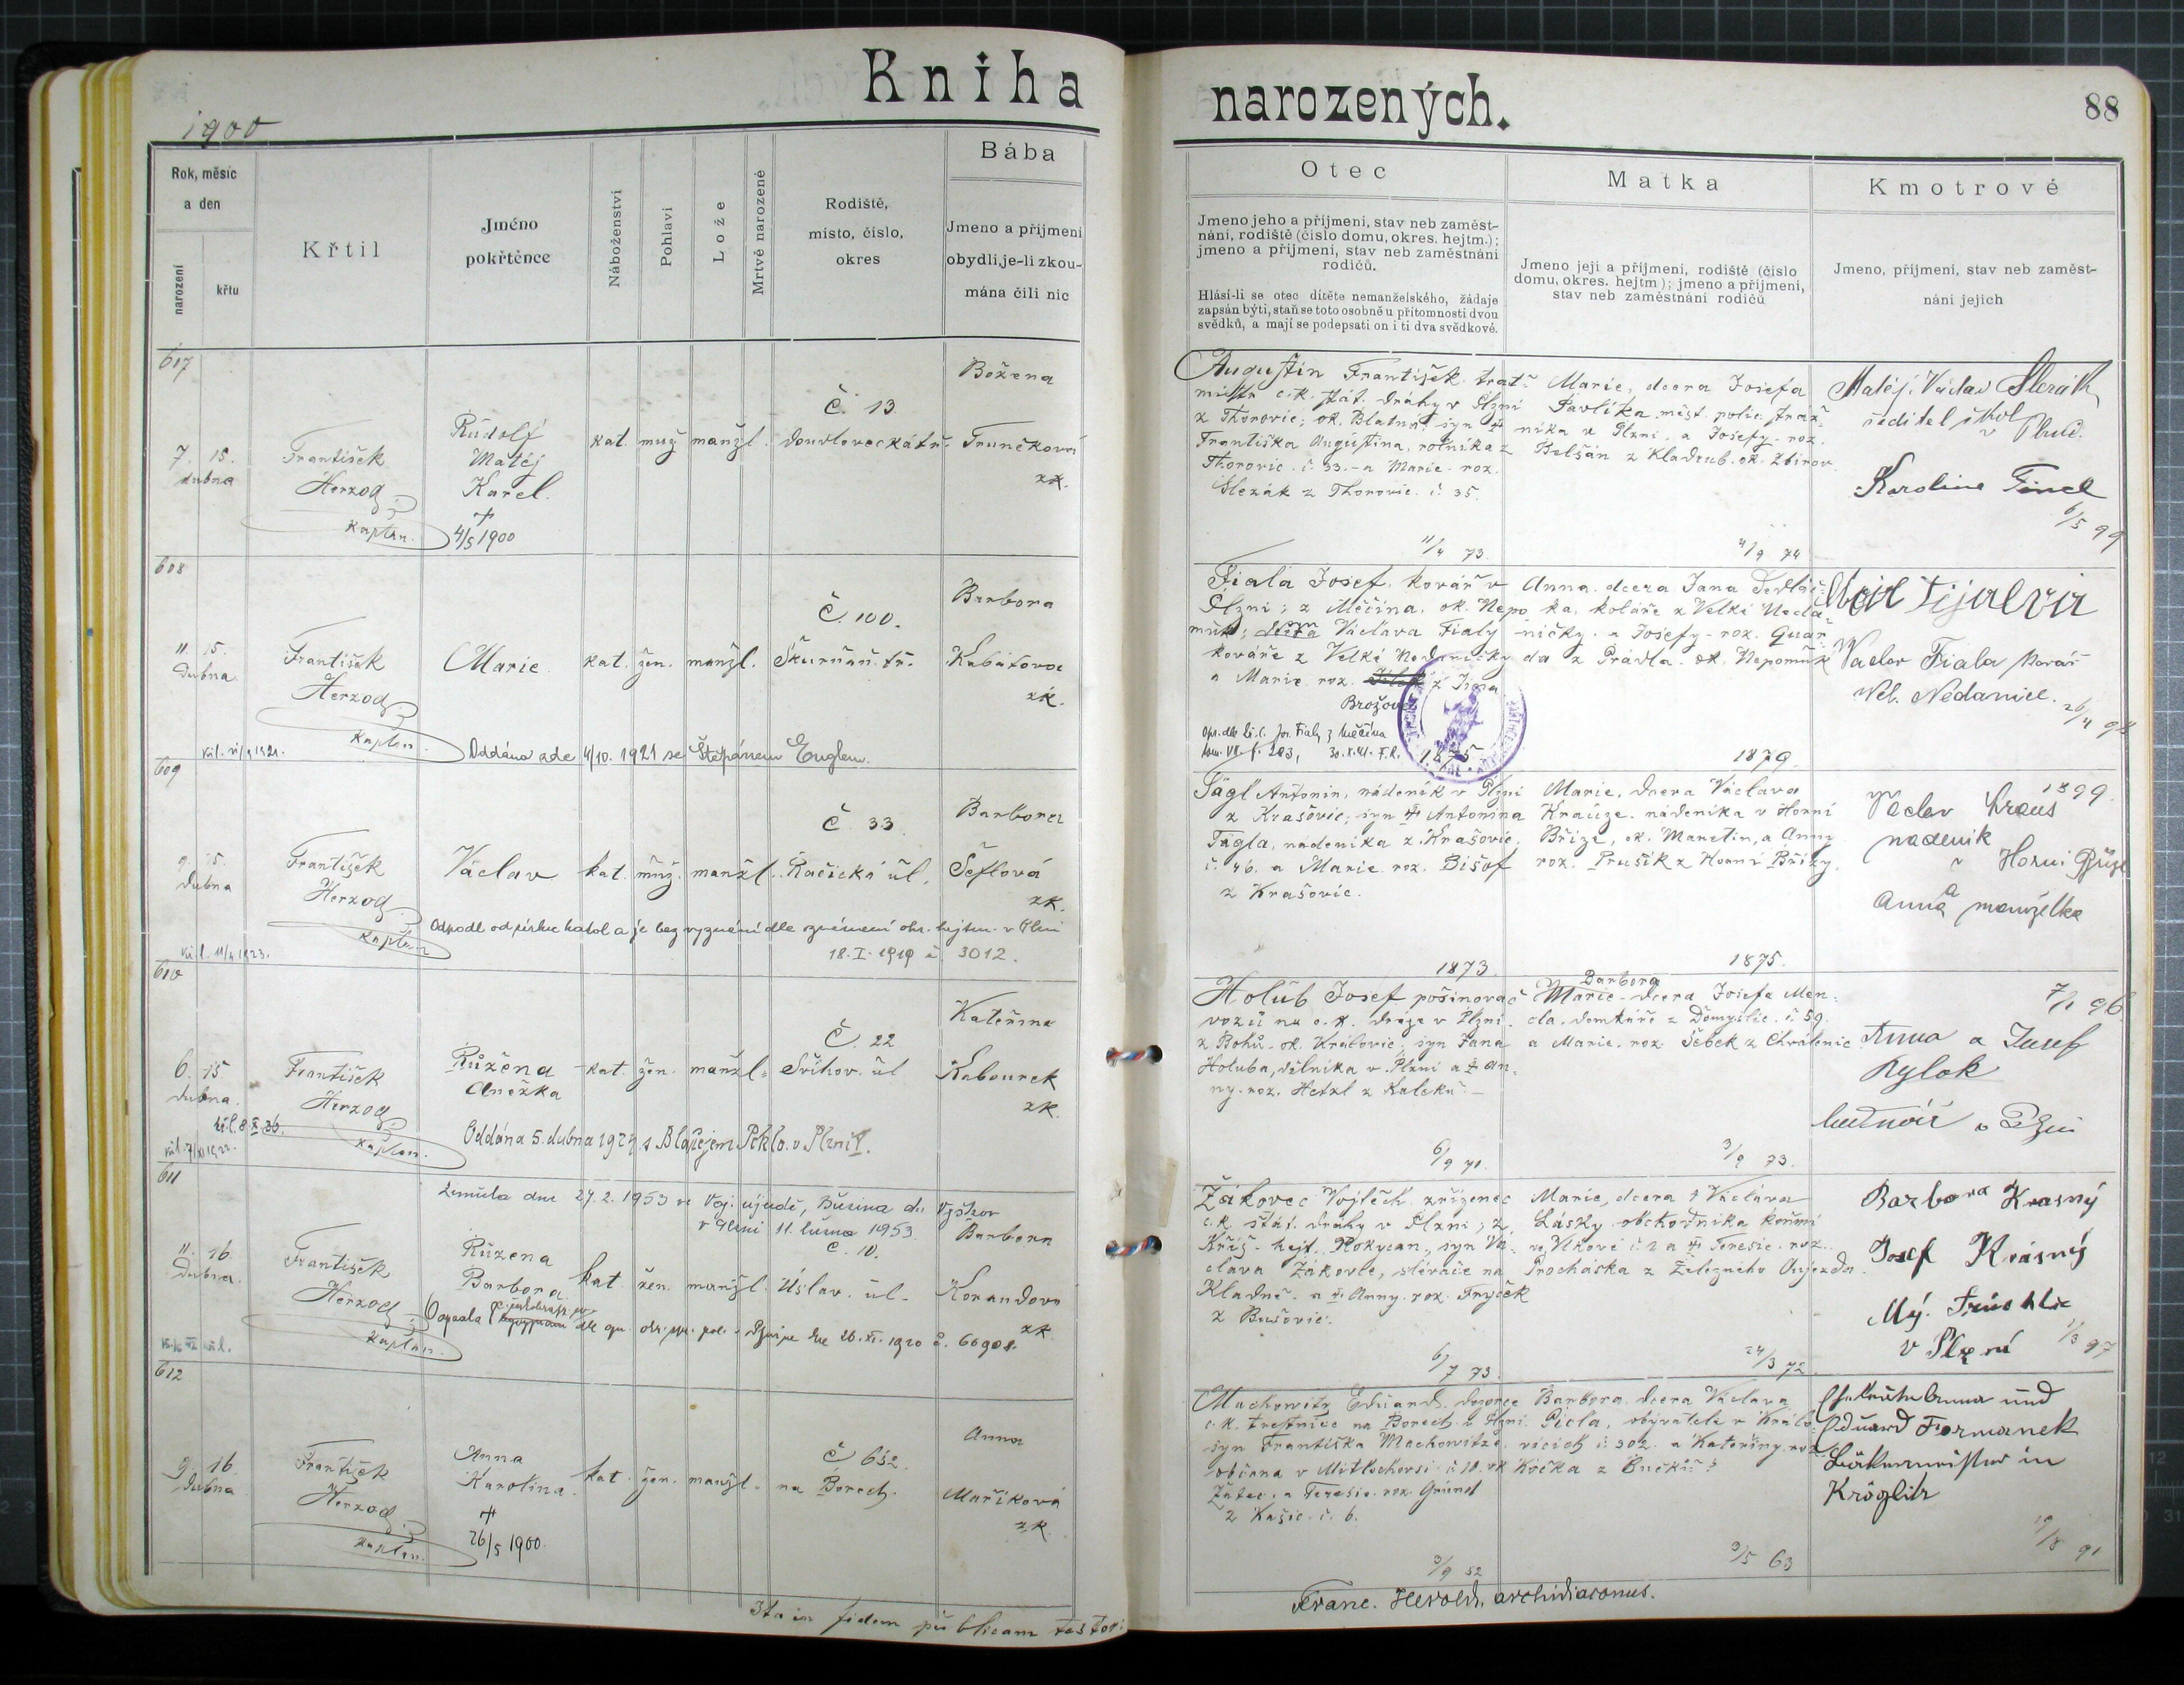 Kniha
narozených.
88
1900
Rok, měsíc
a den
narození
křtu
Křtil
Jméno
pokřtěnce
Náboženství
Pohlaví
Lože
Mrtvě narozené
Rodiště,
místo, číslo,
okres
Bába
Jmeno a příjmení
obydlí, je-li zkou-
mána čili nic
Otec
Jmeno jeho a příjmení, stav neb zaměst-
nání, rodiště (číslo domu, okres. hejtm.);
jmeno a příjmení, stav neb zaměstnání
rodičů.
Hlásí-li se otec dítěte nemanželského, žádaje
zapsán býti, staň se toto osobně u přítomnosti dvou
svědků, a mají se podepsati on i ti dva svědkové.
Matka
Jmeno její a příjmení, rodiště (číslo
domu, okres. hejtm); jmeno a příjmení,
stav neb zaměstnání rodičů
Kmotrové
Jmeno, příjmení, stav neb zaměst-
nání jejich
607
7. 15.
dubna
František
Herzog
kaplan.
Rudolf
Matěj
Karel.
†
4/5 1900
kat. muž. manžl.
Č. 13
Doudlevecká tř.
Božena
Trunečková
zk.
Augustin František trať.
mistr c.k. stát. dráhy v Plzni
z Thorovic, ok. Blatná; syn †
Františka Augustina, rolníka z
Thorovic č. 33. a Marie roz.
Slezák z Thorovic č. 35.
11/4 73.
Marie, dcera Josefa
Pavlíka, měst. polic. stráž-
níka v Plzni a Josefy roz.
Belšán z Kladrub. ok. Zbirov.
4/9 74
Matěj Václav Slezák,
ředitel škol
v
Karolina Fincl
6/5 99
608
11. 15.
Dubna
František
Herzog
kaplan.
Marie
kat. žen. manžl.
Č. 100.
Škurňan. tř.
Barbora
Kubátova
zk.
Oddána zde 4/10. 1921 se Štěpánem Englem.
Fiala Josef, kovář v
Plzni; z Měčína, ok. Nepo
muk; syn Václava Fialy
kováře z Velké Nedaničky
a Marie roz. z Jína
Brožove
1875
Anna, dcera Jana Sedláč-
ka, koláře z Velké Neda-
ničky a Josefy roz. Quar-
da z Prádla. ok. Nepomuk
1879.
Václav Fiala kovář
Vel. Nedanice.
26/4 98
609
9. 15.
Dubna
František
Herzog
kaplan
Václav
kat. muž. manžl.
Č. 33
Račická úl.
Barbora
Šeflová
zk.
Odpadl od církve katol a je bez vyznání dle oznámení okr. hejtm. v Plzni
18. I. 1919 č. 3012.
Tágl Antonín, nádeník v Plzni
z Krašovic; syn † Antonína
Tágla, nádeníka z Krašovic
č. 46. a Marie roz. Bišof
z Krašovic.
1873.
Marie, dcera Václava
Krauze, nádeníka v Horní
Bříze, ok. Manetin, a Anny
roz. Prušík z Horní Břízy.
1875.
1899.
Václav Kraus
nadeník
v Horni Bříze
a
Anna manželka
610
6. 15
Dubna.
František
Herzog
kaplan.
Růžena
Anežka
kat. žen. manžl.
Č. 22
Švihov. úl
Kateřina
Kabourek
zk.
Oddána 5. dubna 1924 s Blažejem Peklo v Plzni.
Holub Josef pošinovač
vozů na c.k. dráze v Plzni
z Bohů. ok. Kralovic; syn Jana
Holuba, dělníka v Plzni a † An-
ny roz. Hetzl z Kaleku.
6/9 71.
Barbora
Marie dcera Josefa Men-
cla, domkáře z Domyslic č. 59.
a Marie roz. Šebek z Chválenic
3/9 73.
7/1 96
Anna a Josef
Rylok
v Plzni
611
Zemřela dne 27. 2. 1953 ve Voj. újezdě, Březina du Vyškov
v Plzni 11. února 1953
11. 16.
Dubna.
František
Herzog
kaplan.
Růžena
Barbora.
kat. žen. manžl.
Č. 10.
Úslav. úl.
Barbora
Korandová
zk.
Žákovec Vojtěch, zřízenec
c.k. stát. dráhy v Plzni; z
Kříš - hejt. Rokycan, syn Vá-
clava Žákovce, slévače na
Kladně. a † Anny roz. Tryček
z Bušovic.
6/7 73.
Marie, dcera † Václava
Lásky obchodníka koňmi
ve Vlkově č. 2 a † Teresie roz.
Procháska z Železného Oujezda.
24/3 72.
Barbora Krasný
Josef Krásný
v Plzni
1/3 97
612
9. 16.
Dubna
František
Herzog
kaplan.
Anna
Karolina.
†
26/5 1900.
kat. žen. manžl.
Č 652.
na Borech.
Anna
Maříková
zk.
Machowitz Eduard, dozorce
c.k. trestnice na Borech u Plzni.
syn Františka Machowitze,
občana v Mitlschovsi č 10. ok
Žatec, a Teresie roz. Gründ
z Kašic. č. 6.
3/9 52
Barbora dcera Václava
Picla, obývatele v Králo-
vicích č. 302. a Kateřiny roz.
Kočka z Bučků?
3/5 63
Eduard Formanek
Bäckermeister in
Kröglitz
19/8 91
Ita in fidem publicam testor:
Franc. Herold, archidiaconus.